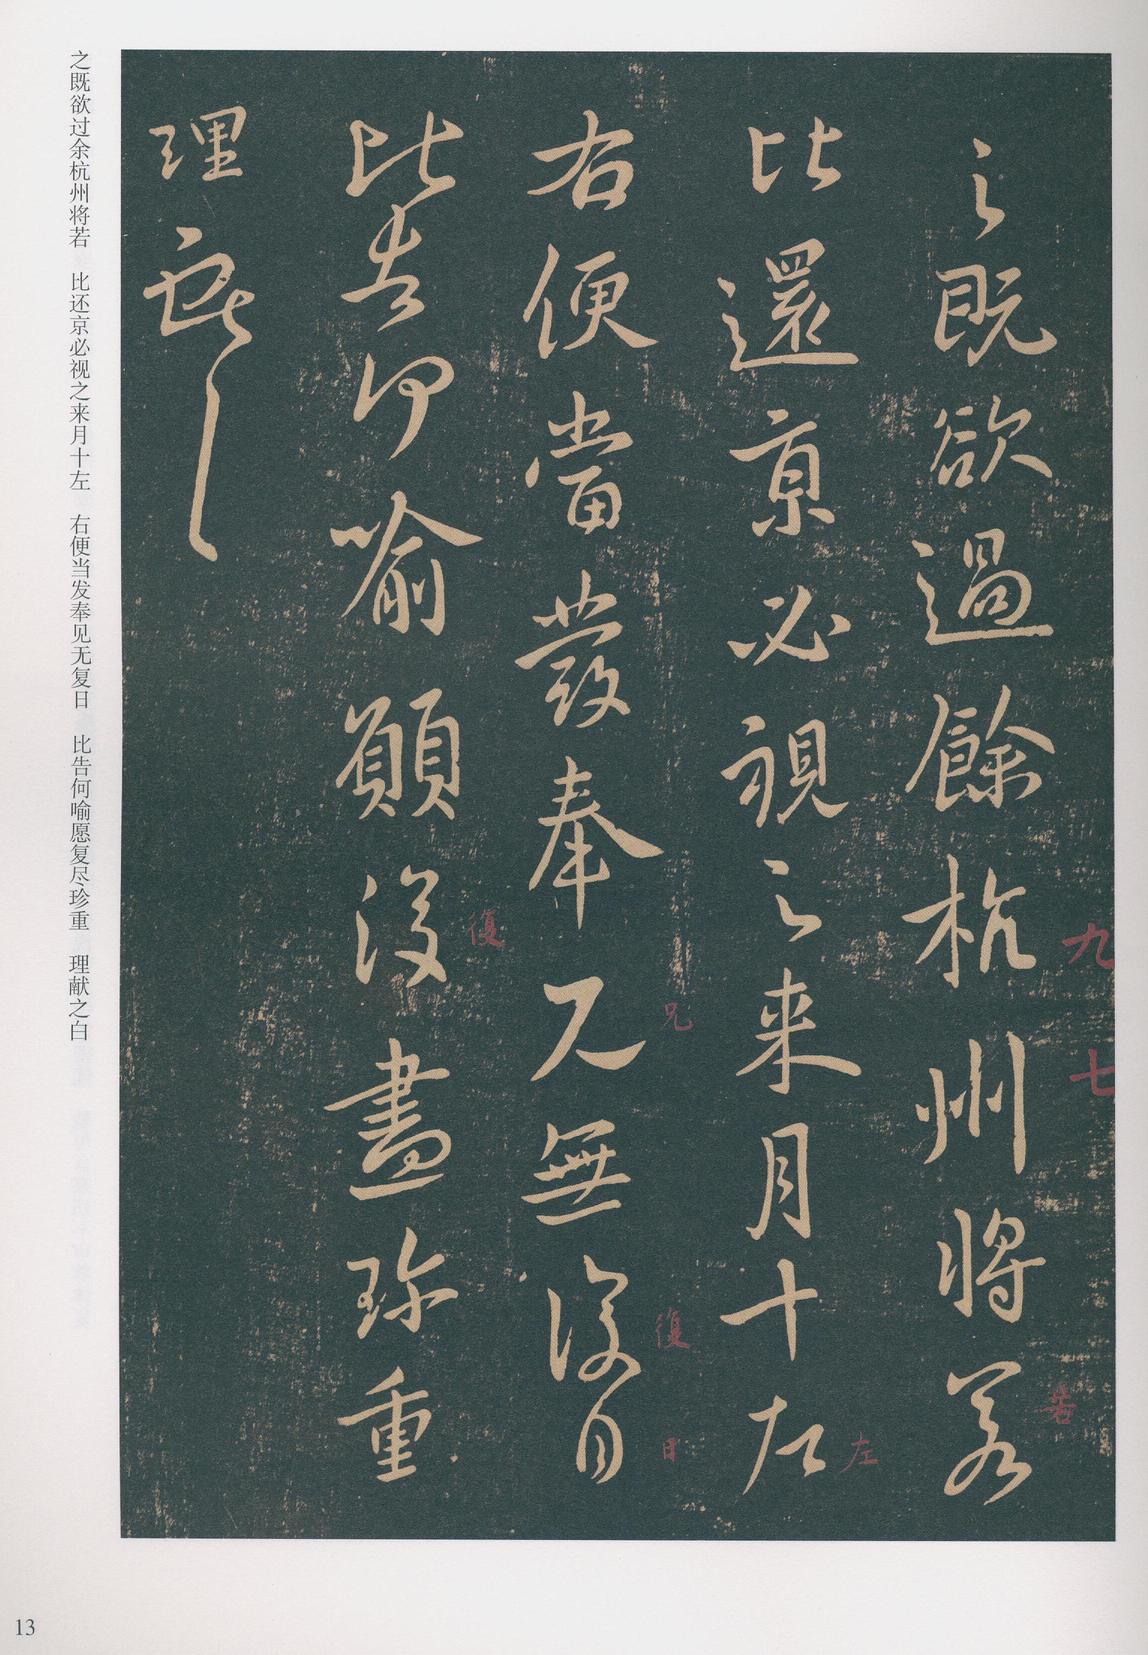 之既欲過餘杭州將若
比還京必視之来月十左
右便當發奉見無復日
比告何喻願復盡珍重
理
九
七
若
左
兄
復
日
復
之既欲过余杭州将若　比还京必视之来月十左　右便当发奉见无复日　比告何喻愿复尽珍重　理献之白
13